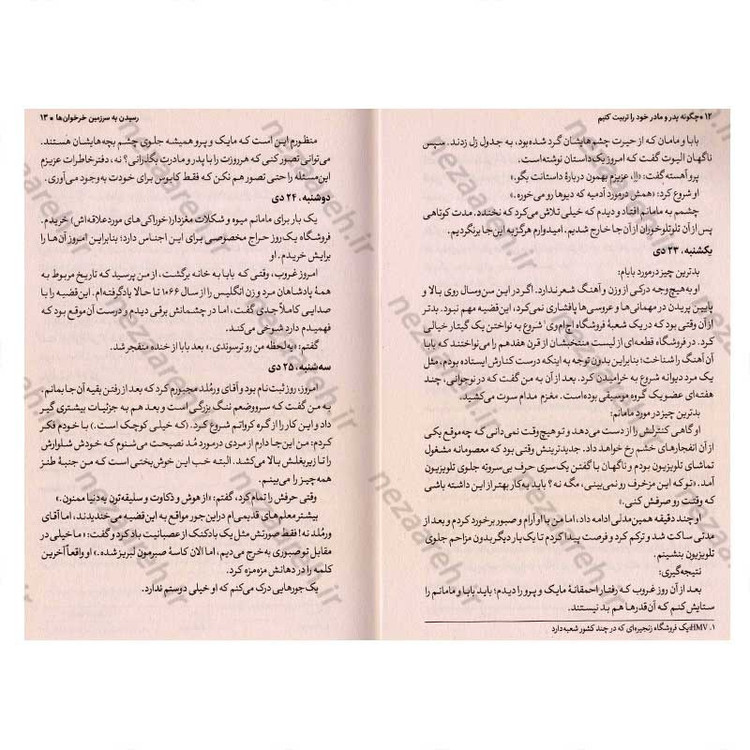 ۱۲ * چگونه پدر و مادر خود را تربیت کنیم
بابا و مامان که از حیرت چشم‌هایشان گرد شده‌بود، به جدول زل زدند. سپس
ناگهان الیوت گفت که امروز یک داستان نوشته‌است.
پرو آهسته گفت: «اِاِ، عزیزم بهمون دربارهٔ داستانت بگو.»
او شروع کرد: «همش درمورد آدمیه که دیوها رو می‌خوره.»
چشمم به مامانم افتاد و دیدم که خیلی تلاش می‌کرد که نخندد. مدت کوتاهی
پس از آن تلوتلوخوران از آن‌جا خارج شدیم. امیدوارم هرگز به این‌جا برنگردیم.
یکشنبه، ۲۳ دی
بدترین چیز درمورد بابام:
او به‌هیچ‌وجه درکی از وزن و آهنگ شعر ندارد. اگر در این سن‌وسال روی بالا و
پایین پریدن در مهمانی‌ها و عروسی‌ها پافشاری نمی‌کرد، این قضیه مهم نبود. بدتر
از آن وقتی بود که در یک شعبهٔ فروشگاه اچ‌ام‌وی۱ شروع به نواختن یک گیتار خیالی
کرد. در فروشگاه قطعه‌ای از لیست منتخبشان از قرن هفدهم را می‌نواختند که بابا
آن آهنگ را شناخت؛ بنابراین بدون توجه به اینکه درست کنارش ایستاده بودم، مثل
یک مرد دیوانه شروع به خرامیدن کرد. بعد از آن به من گفت که در نوجوانی، چند
هفته‌ای عضو یک گروه موسیقی بوده‌است. مغزم مدام سوت می‌کشید.
بدترین چیز در مورد مامانم:
او گاهی کنترلش را از دست می‌دهد و تو هیچ‌وقت نمی‌دانی که چه‌موقع یکی
از آن انفجارهای خشم رخ خواهد داد. جدیدترینش وقتی بود که معصومانه مشغول
تماشای تلویزیون بودم و ناگهان با گفتن یک‌سری حرف بی‌سروته جلوی تلویزیون
آمد. «تو که این مزخرف رو نمی‌بینی، مگه نه؟ باید یه کار بهتر از این داشته باشی
که وقتت رو صرفش کنی.»
او چند دقیقه همین‌مدلی ادامه داد، اما من با او آرام و صبور برخورد کردم و بعد از
مدتی ساکت شد و ترکم کرد و فرصت پیدا کردم تا یک بار دیگر بدون مزاحم جلوی
تلویزیون بنشینم.
نتیجه‌گیری:
بعد از آن روز غروب که رفتار احمقانهٔ مایک و پرو را دیدم؛ باید بابا و مامانم را
ستایش کنم که آن‌قدرها هم بد نیستند.
۱. HMV: یک فروشگاه زنجیره‌ای که در چند کشور شعبه دارد
رسیدن به سرزمین خرخوان‌ها * ۱۳
منظورم این است که مایک و پرو همیشه جلوی چشم بچه‌هایشان هستند.
می‌توانی تصور کنی که هر روزت را با پدر و مادرت بگذرانی؟ نه، دفتر خاطرات عزیزم
این مسئله را حتی تصور هم نکن که فقط کابوس برای خودت به‌وجود می‌آوری.
دوشنبه، ۲۴ دی
یک بار برای مامانم میوه و شکلات مغزدار (خوراکی‌های موردعلاقه‌اش) خریدم.
فروشگاه یک روز حراج مخصوصی برای این اجناس دارد؛ بنابراین امروز آن‌ها را
برایش خریدم. او
امروز غروب، وقتی که بابا به خانه برگشت، از من پرسید که تاریخ مربوط به
همهٔ پادشاهان مرد و زن انگلیس را از سال ۱۰۶۶ تا حالا یاد گرفته‌ام. این قضیه را با
صدایی کاملاً جدی گفت، اما در چشمانش برقی دیدم و درست آن موقع بود که
فهمیدم دارد شوخی می‌کند.
گفتم: «یه‌لحظه من رو ترسوندی.» بعد بابا از خنده منفجر شد.
سه‌شنبه، ۲۵ دی
امروز، روز ثبت‌نام بود و آقای ورمُلد مجبورم کرد که بعد از رفتن بقیه آن جا بمانم.
به من گفت که سرووضعم ننگ بزرگی است و بعد هم به جزئیات بیشتری گیر
داد و این کار را از گره کرواتم شروع کرد. (که خیلی کوچک است.) با خودم فکر
کردم: من این‌جا دارم از مردی درمورد مُد نصیحت می‌شنوم که خودش شلوارش
را تا زیربغلش بالا می‌کشد. البته خب این خوش‌بختی است که من جنبهٔ طنز
همه‌چیز را می‌بینم.
وقتی حرفش را تمام کرد، گفتم: «از هوش و ذکاوت و سلیقه‌تون یه‌دنیا ممنون.»
بیشتر معلم‌های قدیمی‌ام در این‌جور مواقع به این قضیه می‌خندیدند، اما آقای
ورمُلد نه! فقط صورتش مثل یک بادکنک از عصبانیت باد کرد و گفت: «ما خیلی در
مقابل تو صبوری به‌خرج می‌دیم، اما الان کاسهٔ صبرمون لبریز شده.» او واقعاً آخرین
کلمه را در دهانش مزه‌مزه کرد.
یک‌جورهایی درک می‌کنم که او خیلی دوستم ندارد.
nezaareh.ir